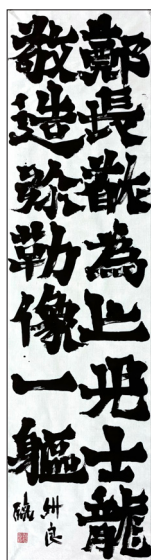 鄭長猷為亡兒士龍
敬造弥勒像一軀
州良